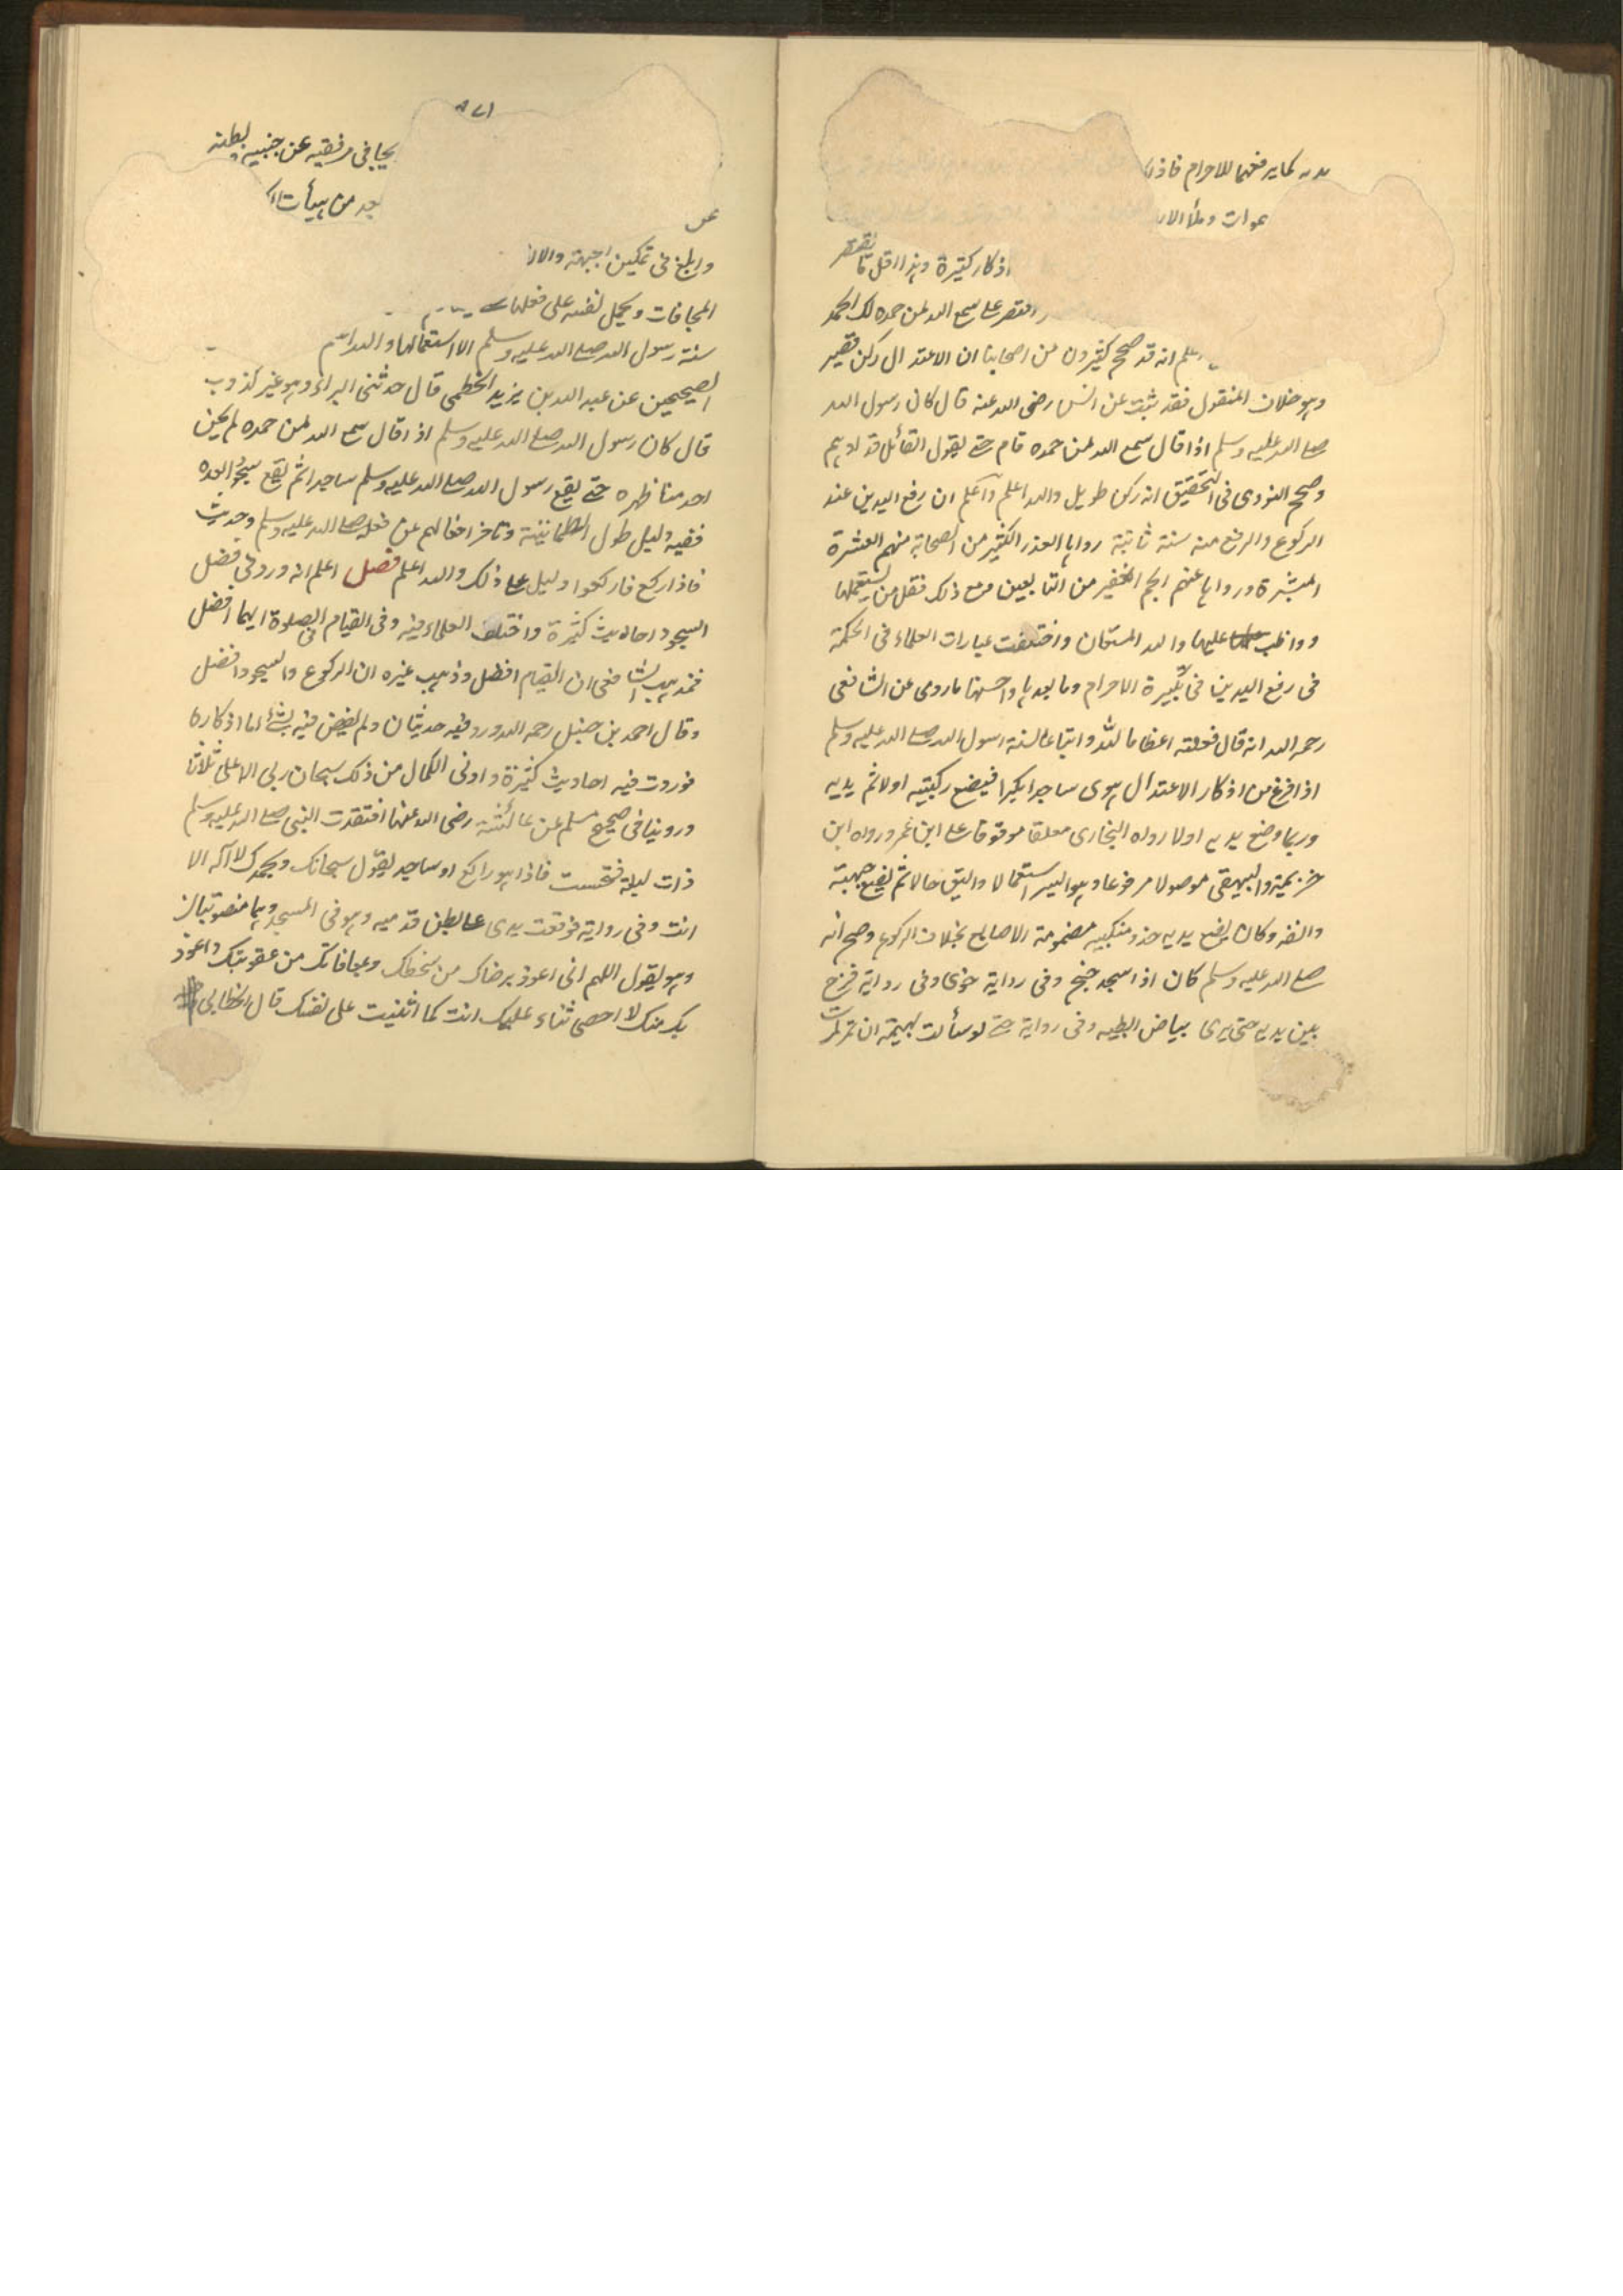 يديه كما يرفعهما للاحرام فاذا
موات وملأ الار
اذكار كثيرة وهذا اقل ما يقتصر
اقتصر على سمع الله لمن حمده لك الحمد
اعلم انه قد صحح كثيرون من اصحابنا ان الاعتدال ركن قصير
وهو خلاف المنقول فقد ثبت عن انس رضى الله عنه قال كان رسول الله
صلى الله عليه وسلم اذا قال سمع الله لمن حمده قام حتى يقول القائل قد اوهم
وصحح النووى فى التحقيق انه ركن طويل والله اعلم واعلم ان رفع اليدين عند
الركوع والرفع منه سنة ثابتة رواها العدد الكثير من الصحابة منهم العشرة
المبشرة ورواها عنهم الجم الغفير من التابعين ومع ذلك فقل من يستعملها
وواظب عليها والله المستعان واختلفت عبارات العلماء فى الحكمة
فى رفع اليدين فى تكبيرة الاحرام وما بعدها واحسنها ما روى عن الشافعى
رحمه الله انه قال فعلته اعظاما لله واتباعا لسنة رسول الله صلى الله عليه وسلم
اذا فرغ من اذكار الاعتدال يهوى ساجدا مكبرا فيضع ركبتيه اولا ثم يديه
وربما وضع يديه اولا رواه البخارى معلقا موقوفا على ابن عمر ورواه ابن
خزيمة والبيهقى موصولا مرفوعا وهو ايسر استعمالا واليق حالا ثم يضع جبهته
وانفه وكان يضع يديه حذو منكبيه مضمومة الاصابع بخلاف الركوع وصح انه
صلى الله عليه وسلم كان اذا سجد جنح وفى رواية خوى وفى رواية فرج
بين يديه حتى يرى بياض ابطيه وفى رواية حتى لو سألت بهيمة ان تمر لمرت
٨٧١
يجافى مرفقيه عن جنبيه وبطنه
بعد من هيأت الك
عن
وابلغ فى تمكين الجبهة والان
المجافات ويحمل نفسه على فعلها
سنة رسول الله صلى الله عليه وسلم الا استعمالها والله
الصحيحين عن عبد الله بن يزيد الخطمى قال حدثنى البراء وهو غير كذوب
قال كان رسول الله صلى الله عليه وسلم اذا قال سمع الله لمن حمده لم يحن
احد منا ظهره حتى يقع رسول الله صلى الله عليه وسلم ساجدا ثم يقع سجودا بعده
ففيه دليل طول الطمانينة وتاخر افعالهم عن فعله صلى الله عليه وسلم وحديث
فاذا ركع فاركعوا دليل على ذلك والله اعلم فصل اعلم انه ورد فى فضل
السجود احاديث كثيرة واختلف العلماء فيه وفى القيام فى الصلوة ايهما افضل
فمذهب الشافعى ان القيام افضل وذهب غيره ان الركوع والسجود افضل
وقال احمد بن حنبل رحمه الله ورد فيه حديثان ولم يقض فيه بشئ اما اذكاره
فوردت فيه احاديث كثيرة وادنى الكمال من ذلك سبحان ربى الاعلى ثلاثا
وروينا فى صحيح مسلم عن عائشة رضى الله عنها افتقدت النبى صلى الله عليه وسلم
ذات ليلة فتحسست فاذا هو راكع او ساجد يقول سبحانك وبحمدك لا اله الا
انت وفى رواية فوقعت يدى على بطن قدميه وهو فى المسجد وهما منصوبتان
وهو يقول اللهم انى اعوذ برضاك من سخطك وبمعافاتك من عقوبتك واعوذ
بك منك لا احصى ثناء عليك انت كما اثنيت على نفسك قال الخطابى